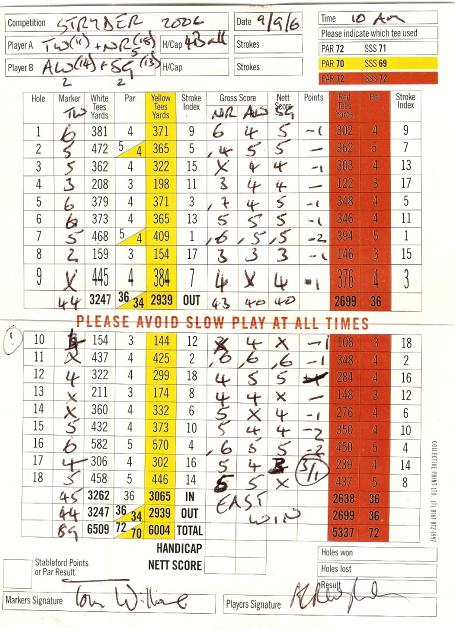 Competition STRYDER 2006 Date 9/9/6 Time 10 Am
Player A TW(11) + NR(18) H/Cap 4Ball Strokes
Please indicate which tee used
PAR 72 SSS 71
Player B ALW(14) + SG(13) H/Cap Strokes
PAR 70 SSS 69
2 2
PAR 72 SSS 72
Hole Marker White Tees Yards Par Yellow Tees Yards Stroke Index Gross Score Nett Score Points Red Tees Yards Par Stroke Index
TW NR ALW SG
1 6 381 4 371 9 6 4 5 -1 302 4 9
2 5 472 5 4 365 5 4 5 5 — 362 5 7
3 5 362 4 322 15 X 4 4 -1 303 4 13
4 3 208 3 198 11 3 4 4 — 122 3 17
5 6 379 4 371 3 7 4 5 -1 348 4 5
6 6 373 4 365 13 5 5 5 -1 346 4 11
7 5 468 5 4 409 1 6 5 5 -2 394 5 1
8 2 159 3 154 17 3 3 3 -1 146 3 15
9 X 445 4 384 7 4 X 4 -1 376 4 3
44 3247 36 34 2939 OUT 43 40 40 2699 36
PLEASE AVOID SLOW PLAY AT ALL TIMES
10 154 3 144 12 4 X -1 108 3 18
11 X 437 4 425 2 6 6 6 -1 348 4 2
12 4 322 4 299 18 4 5 5 284 4 16
13 X 211 3 174 8 4 4 X — 148 3 12
14 X 360 4 332 6 5 X 4 -1 276 4 6
15 5 432 4 373 10 5 4 5 -2 350 4 10
16 6 582 5 570 4 6 5 5 -2 450 5 4
17 4 306 4 302 16 5 4 3/1 289 4 14
18 5 458 5 446 14 5 5 X 437 5 8
45 3262 36 3065 IN EAST 2638 36
44 3247 36 34 2939 OUT WIN 2699 36
89 6509 72 70 6004 TOTAL 5337 72
HANDICAP
Stableford Points or Par Result
NETT SCORE
Holes won
Holes lost
Result
Markers Signature Players Signature